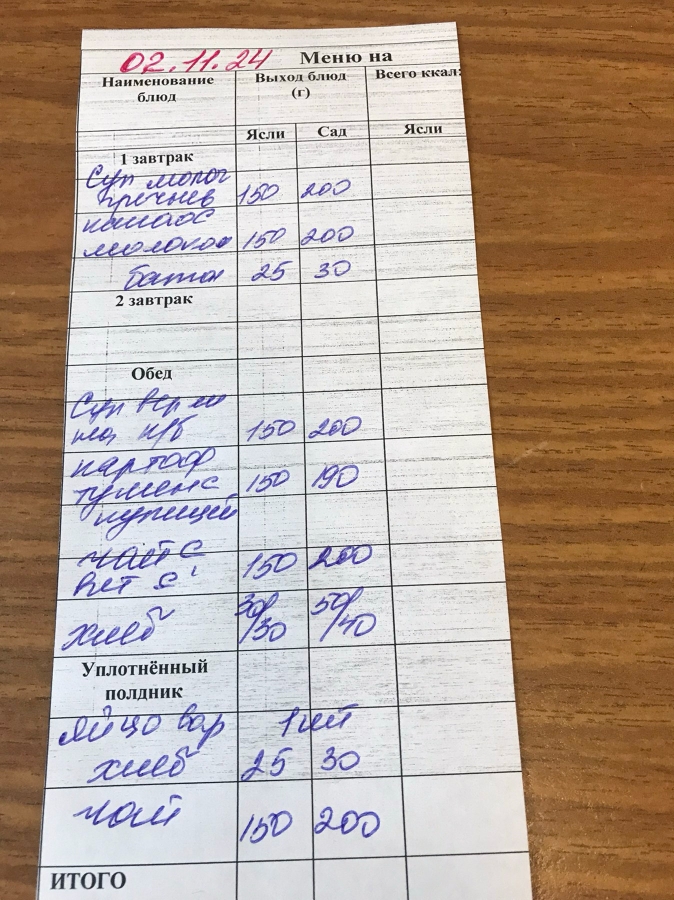 02.11.24 Меню на
Наименование блюд Выход блюд (г) Всего ккал:
Ясли Сад Ясли
1 завтрак
Суп молоч
гречнев 150 200
какао с
молоком 150 200
батон 25 30
2 завтрак
Обед
Суп верми
на к/б 150 200
картоф
тушен с 150 190
курицей
чай с 150 200
вит с
хлеб 30/30 50/40
Уплотнённый
полдник
яйцо вар 1шт
хлеб 25 30
чай 150 200
ИТОГО